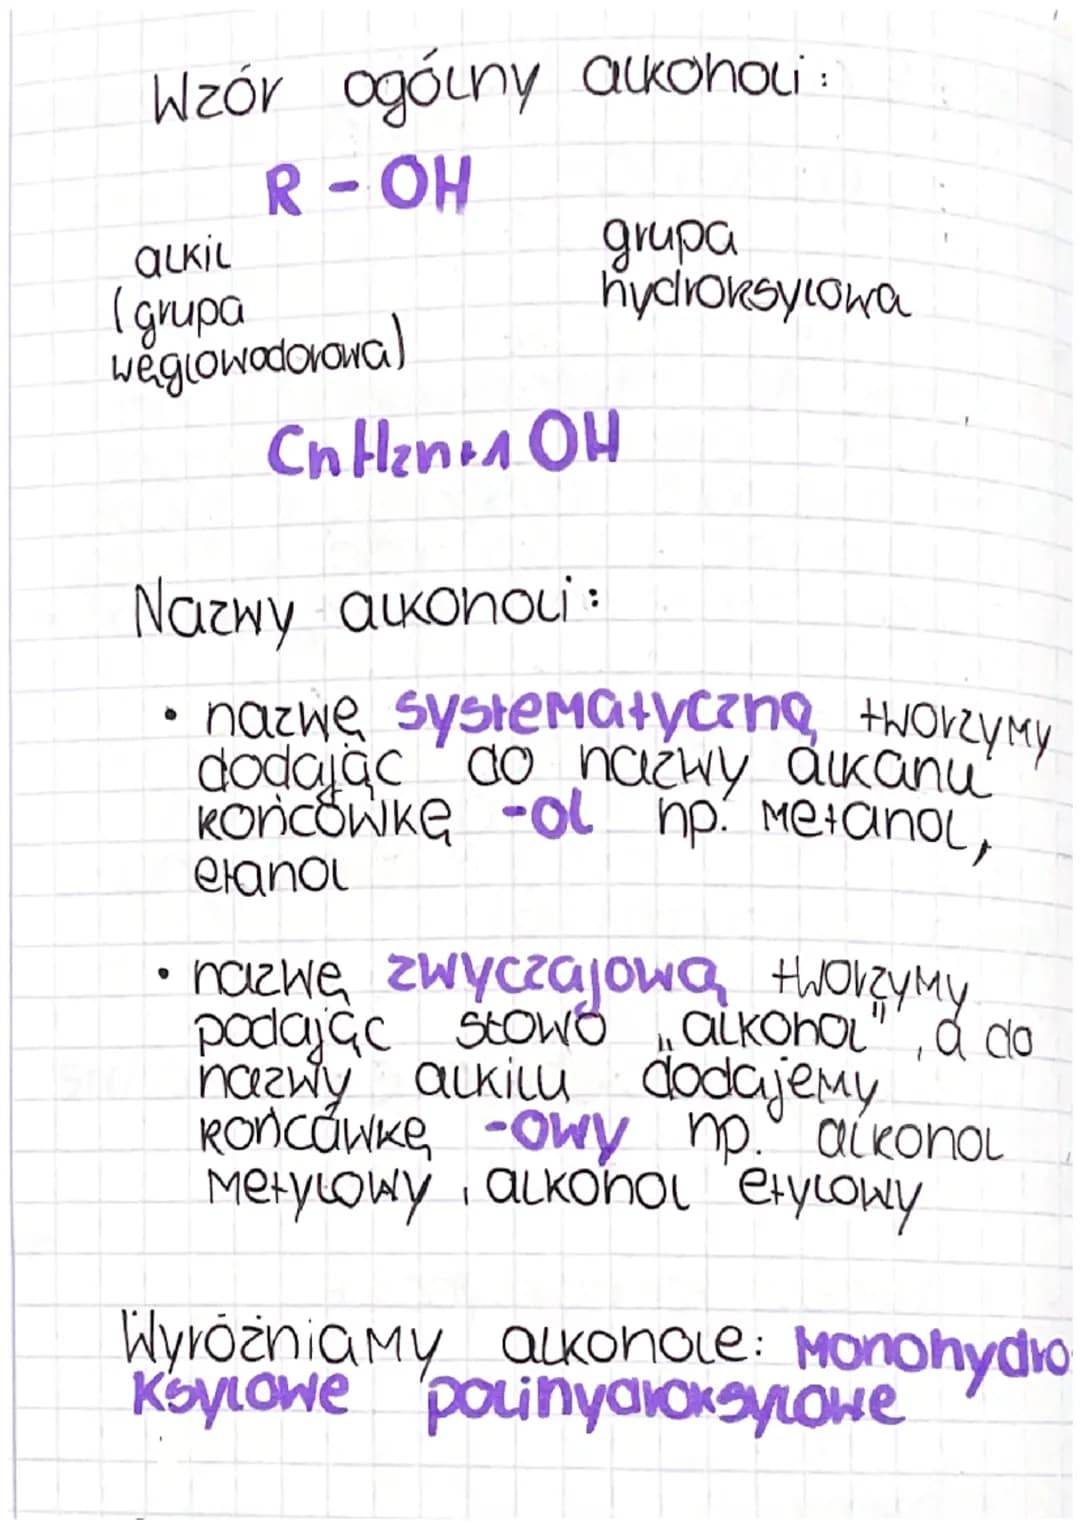 Wzór ogólny alkoholi:
R - OH
alkil
(grupa
węglowodorowa)
grupa
hydroksylowa
CnH2n+1 OH
Nazwy alkoholi:
• nazwę systematyczną tworzymy
dodając do nazwy alkanu
końcówkę -ol np. metanol,
etanol
• nazwę zwyczajową tworzymy
podając słowo „alkohol", a do
nazwy alkilu dodajemy
końcówkę -owy np. alkohol
metylowy, alkohol etylowy
Wyróżniamy alkohole: monohydro
ksylowe polihydroksylowe